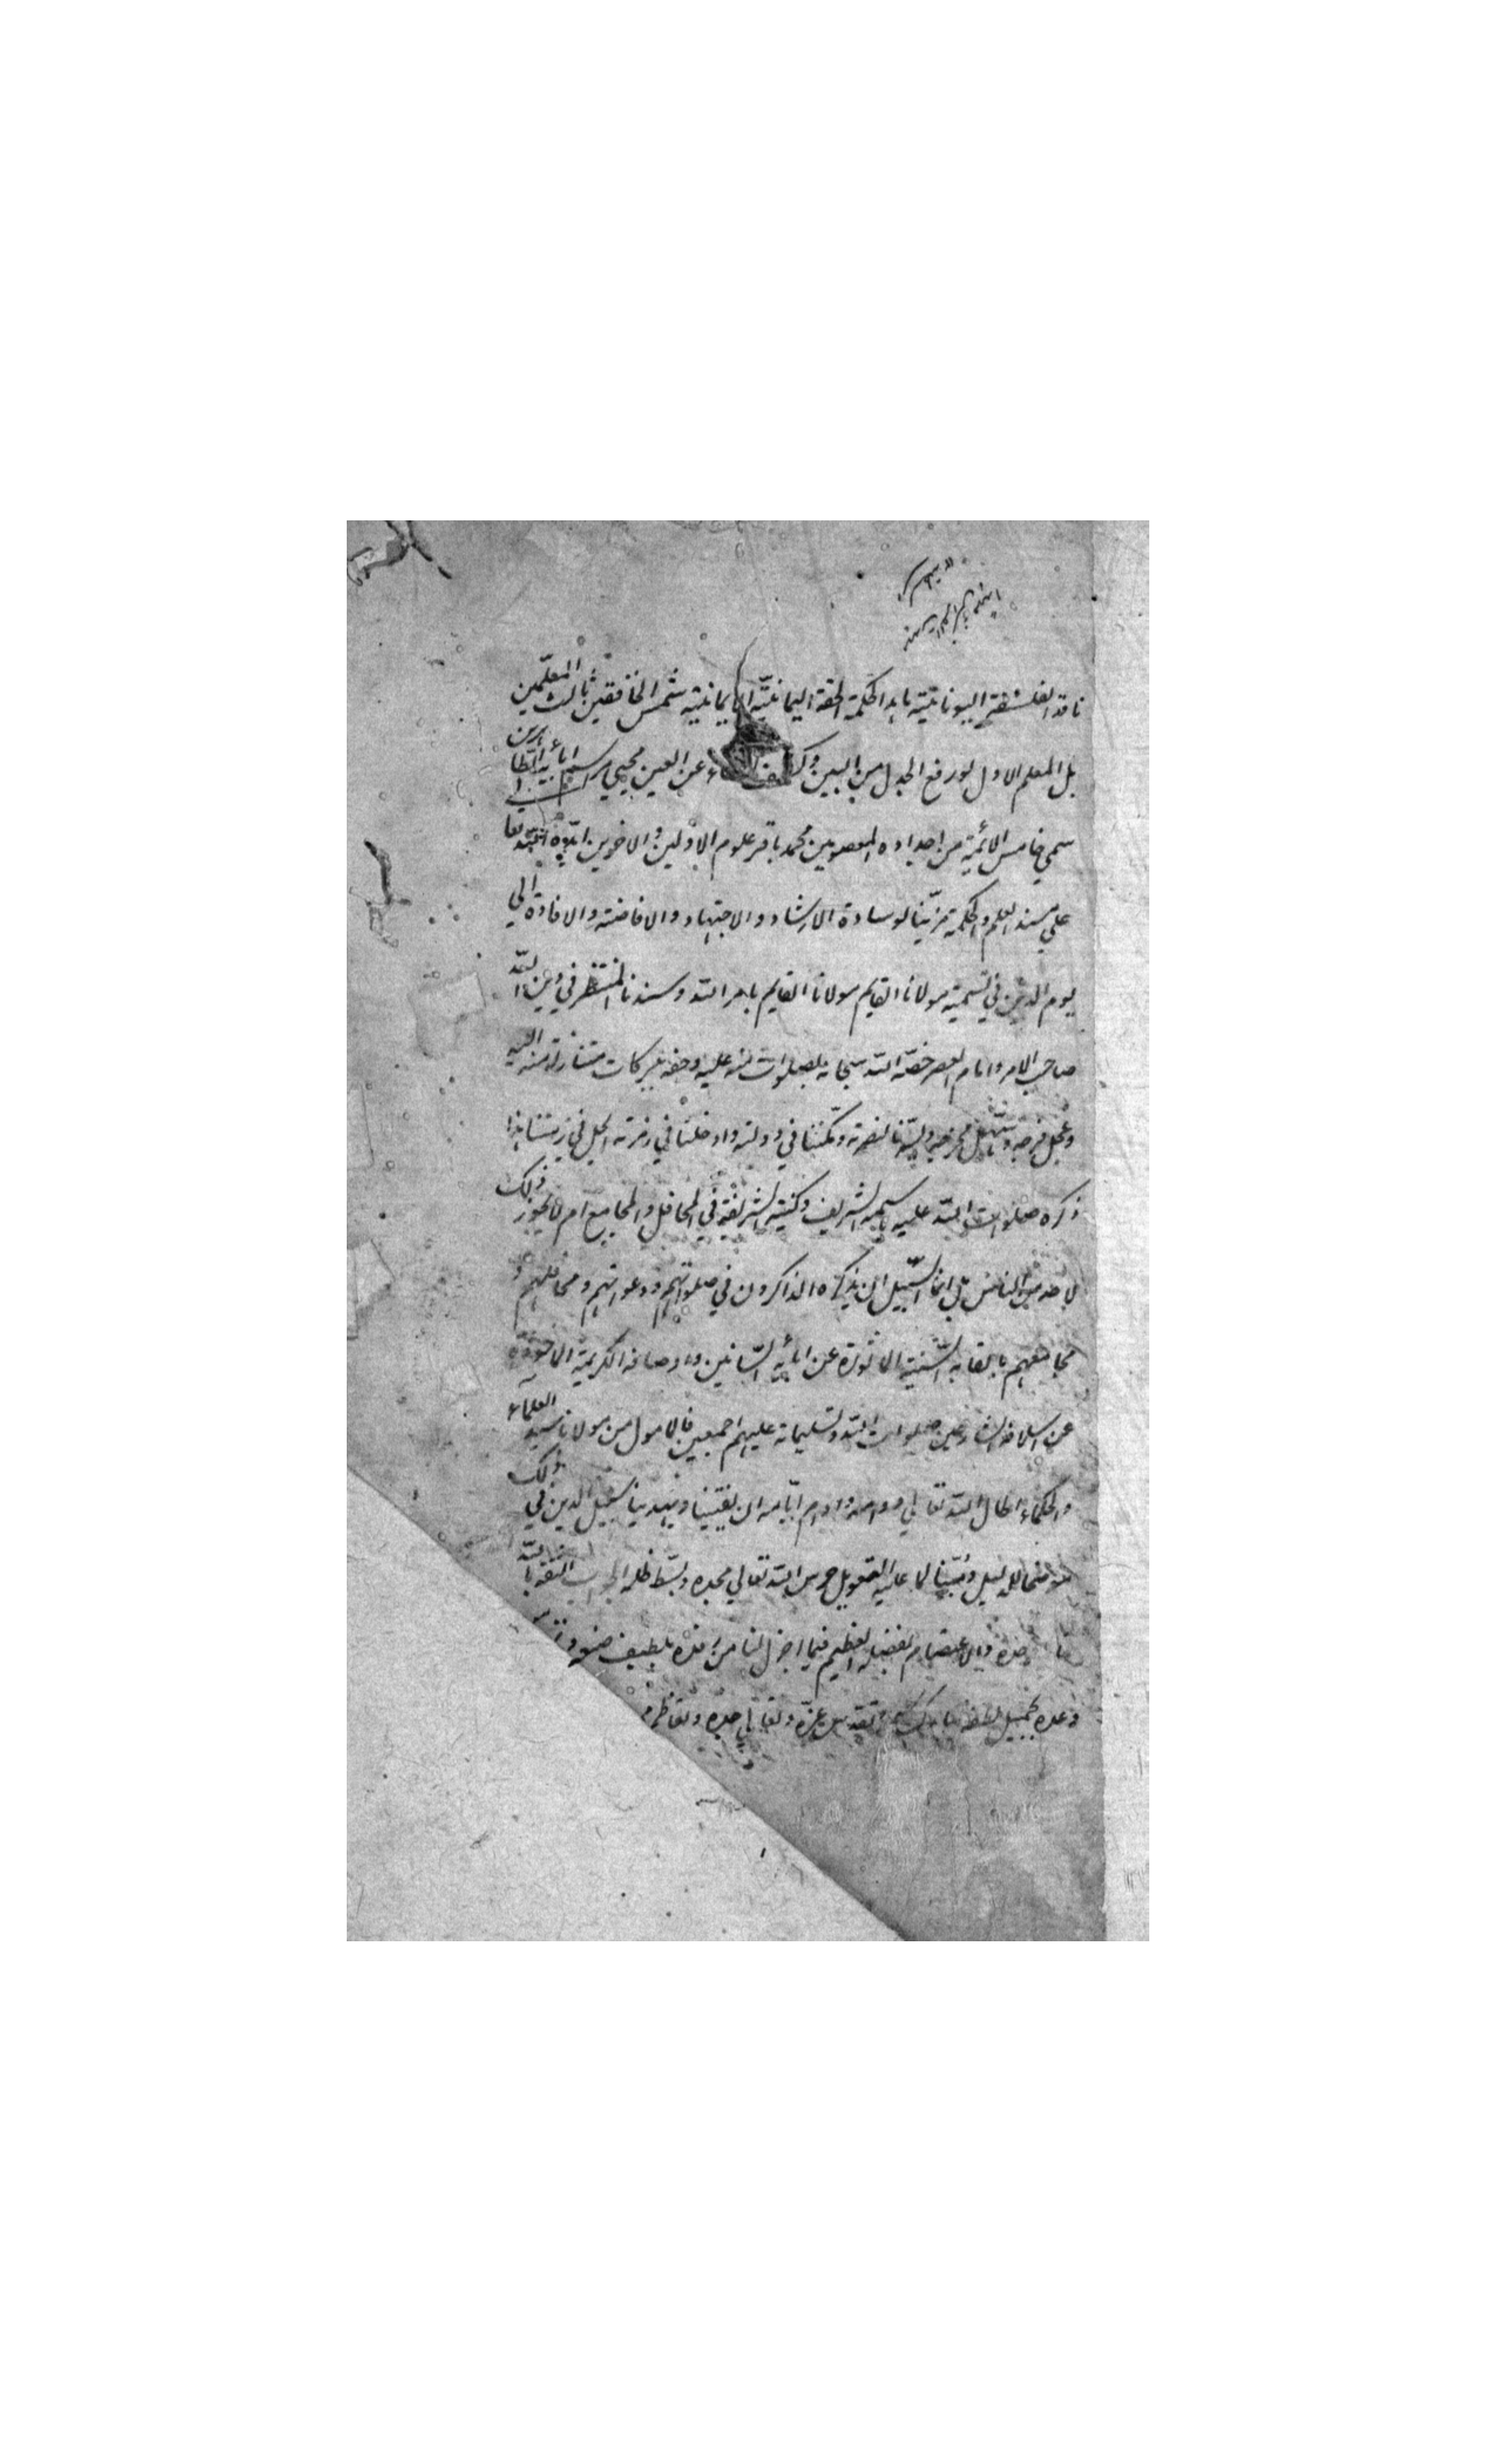 ناقد الفلسفة اليونانية ناهد الحكمة الحقة اليمانية الايمانية شمس الخافقين ثالث المعلمين
بل المعلم الاول لو رفع الجدل من البين وكشف عن العين محيي مراسم ابائه الطاهرين
سمي خامس الائمة من اجداده المعصومين محمد باقر علوم الاولين والاخرين ايده الله تعا
علي مسند العلم والحكمة مزينا لوسادة الارشاد والاجتهاد والافاضة والافادة الي
يوم الدين في تسمية مولانا القايم مولانا القايم بامر الله وسيدنا المنتظر في دين الله
صاحب الامر وامام العصر خصه الله سبحانه بصلوات منه عليه وحفه ببركات متنازلة منه اليه
وعجل فرجه وسهل مخرجه ويسرنا لنصرته ومكننا في دولته وادخلنا في زمرته ايحل في زمننا هذا
ذكره صلوات الله عليه باسمه الشريف وكنيته الشريفة في المحافل والمجامع ام لا يجوز ذلك
لاحد من الناس بل انما السبيل ان يذكره الذاكرون في صلواتهم ودعواتهم ومحافلهم و
مجامعهم بالقابه السنية الماثورة عن ابائه السانين واوصافه الكريمة الماخوذة
عن اسلافه الشارعين صلوات الله وتسليماته عليهم اجمعين فالمامول من مولانا سيد العلماء
والحكماء اطال الله تعالي دوامه وادام ايامه ان يفتينا ويهدينا سبيل الدين في ذلك
موضحا للدليل ومبينا لما عليه التعويل حرس الله تعالي مجده وبسط ظله الجواب الثقة بالله
وحده والاعتصام بفضله العظيم فيما اجزل لنا من رفده بلطيف صنعه
وعده بجميل لطفه تقدس عزه وتعالي جده وتعاظم